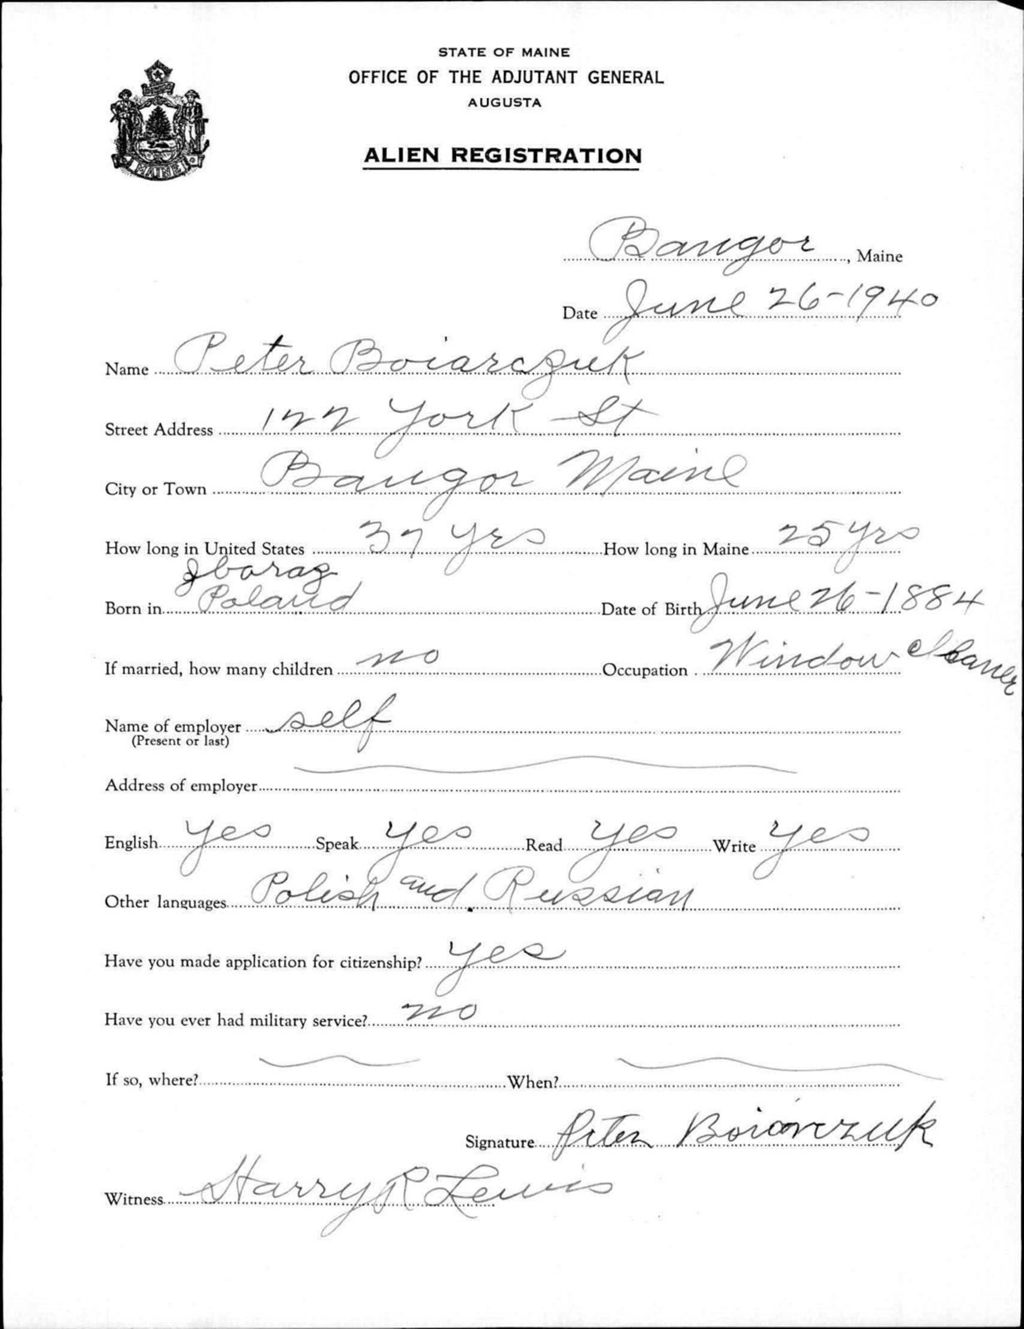 STATE OF MAINE
OFFICE OF THE ADJUTANT GENERAL
AUGUSTA
ALIEN REGISTRATION
MAINE
Bangor, Maine
Date June 26-1940
Name Peter Boiarczuk
Street Address 122 York St
City or Town Bangor Maine
How long in United States 37 yrs How long in Maine 25 yrs
Zbaraz
Born in Poland Date of Birth June 26-1884
If married, how many children no Occupation Window Cleaner
Name of employer self
(Present or last)
Address of employer
English yes Speak yes Read yes Write yes
Other languages Polish and Russian
Have you made application for citizenship? yes
Have you ever had military service? no
If so, where? When?
Signature Peter Boiarczuk
Witness Harry R Lewis